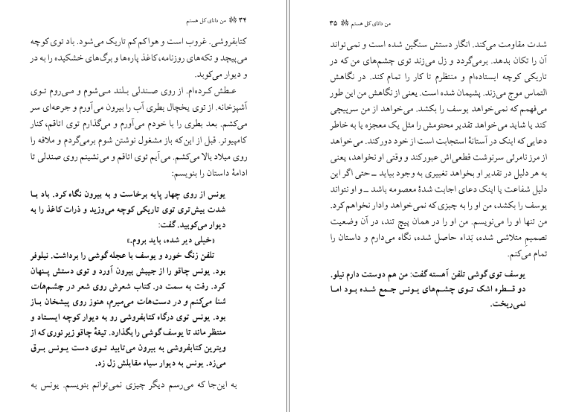 ۳۴ من دانای کل هستم
کتابفروشی. غروب است و هوا کم کم تاریک می‌شود. باد توی کوچه
می‌پیچد و تکه‌های روزنامه، کاغذ پاره‌ها و برگ‌های خشکیده را به در
و دیوار می‌کوبد.
عطش کرده‌ام. از روی صندلی بلند می‌شوم و می‌روم توی
آشپزخانه. از توی یخچال بطری آب را بیرون می‌آورم و جرعه‌ای سر
می‌کشم. بعد بطری را با خودم می‌آورم و می‌گذارم توی اتاقم، کنار
کامپیوتر. قبل از این‌که باز مشغول نوشتن شوم برمی‌گردم و ملافه را
روی میلاد بالا می‌کشم. می‌آیم توی اتاقم و می‌نشینم روی صندلی تا
ادامهٔ داستان را بنویسم:
یونس از روی چهار پایه برخاست و به بیرون نگاه کرد. باد با
شدت بیش‌تری توی تاریکی کوچه می‌وزید و ذرات کاغذ را به
دیوار می‌کوبید. گفت:
«خیلی دیر شده، باید بروم.»
تلفن زنگ خورد و یوسف با عجله گوشی را برداشت. نیلوفر
بود. یونس چاقو را از جیبش بیرون آورد و توی دستش پنهان
کرد. رفت به سمت در. کتاب شعرش روی شعر در چشم‌هات
شنا می‌کنم و در دست‌هات می‌میرم، هنوز روی پیشخان باز
بود. یونس توی درگاه کتابفروشی رو به دیوار کوچه ایستاد و
منتظر ماند تا یوسف گوشی را بگذارد. تیغهٔ چاقو زیر نوری که از
ویترین کتابفروشی به بیرون می‌تابید توی دست یونس برق
می‌زد. یونس به دیوار سیاه مقابلش زل زد.
به این‌جا که می‌رسم دیگر چیزی نمی‌توانم بنویسم. یونس به
من دانای کل هستم ۳۵
شدت مقاومت می‌کند. انگار دستش سنگین شده است و نمی‌تواند
آن را تکان بدهد. برمی‌گردد و زل می‌زند توی چشم‌های من که در
تاریکی کوچه ایستاده‌ام و منتظرم تا کار را تمام کند. در نگاهش
التماس موج می‌زند. پشیمان شده است. یعنی از نگاهش من این طور
می‌فهمم که نمی‌خواهد یوسف را بکشد. می‌خواهد از من سرپیچی
کند یا شاید می‌خواهد تقدیر محتومش را مثل یک معجزه یا به خاطر
دعایی که اینک در آستانهٔ استجابت است از خود دور کند. می‌خواهد
از مرز نامرئی سرنوشت قطعی‌اش عبور کند و وقتی او نخواهد، یعنی
به هر دلیل در تقدیر او بخواهد تغییری به وجود بیاید ــ حتی اگر این
دلیل شفاعت یا اینک دعای اجابت شدهٔ معصومه باشد ــ و او نتواند
یوسف را بکشد، من او را به چیزی که نمی‌خواهد وادار نخواهم کرد.
من تنها او را می‌نویسم. من او را در همان پیچ تند، در آن وضعیت
تصمیم متلاشی شده، بَداء حاصل شده، نگاه می‌دارم و داستان را
تمام می‌کنم.
یوسف توی گوشی تلفن آهسته گفت: من هم دوستت دارم نیلو.
دو قطره اشک توی چشم‌های یونس جمع شده بود اما
نمی‌ریخت.